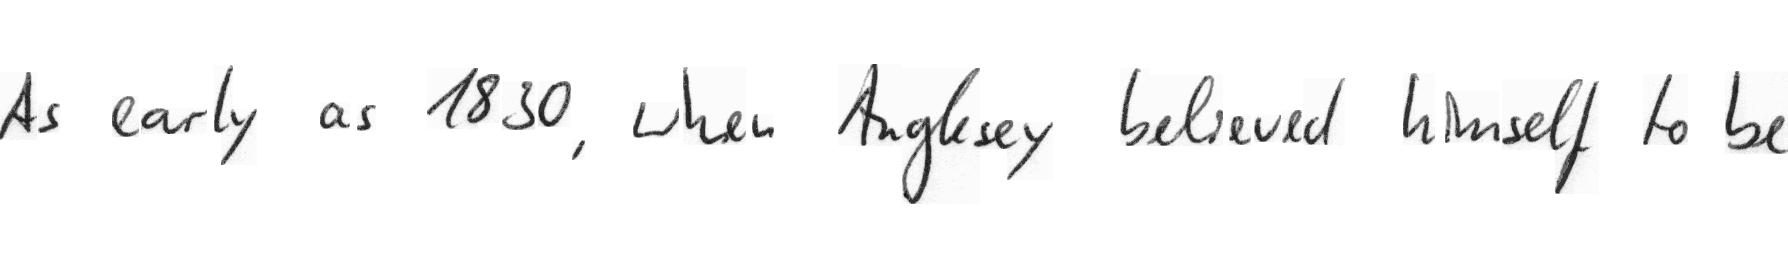 As early as 1830, when Anglesey believed himself to be